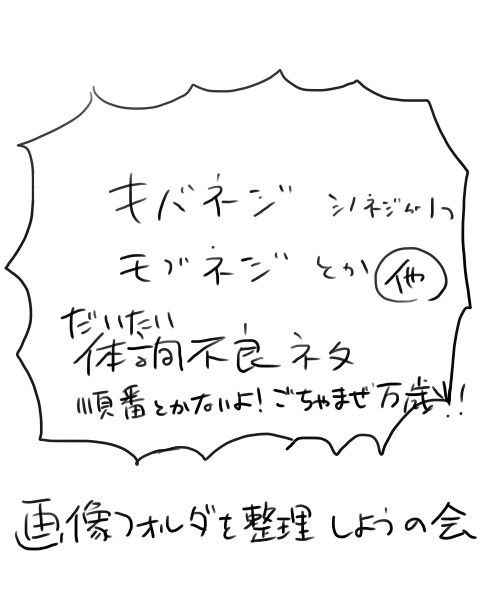 キバネジ シノネジが1つ
モブネジ とか 他
だいたい
体調不良ネタ
順番とかないよ！ごちゃまぜ万歳!!
画像フォルダを整理しようの会